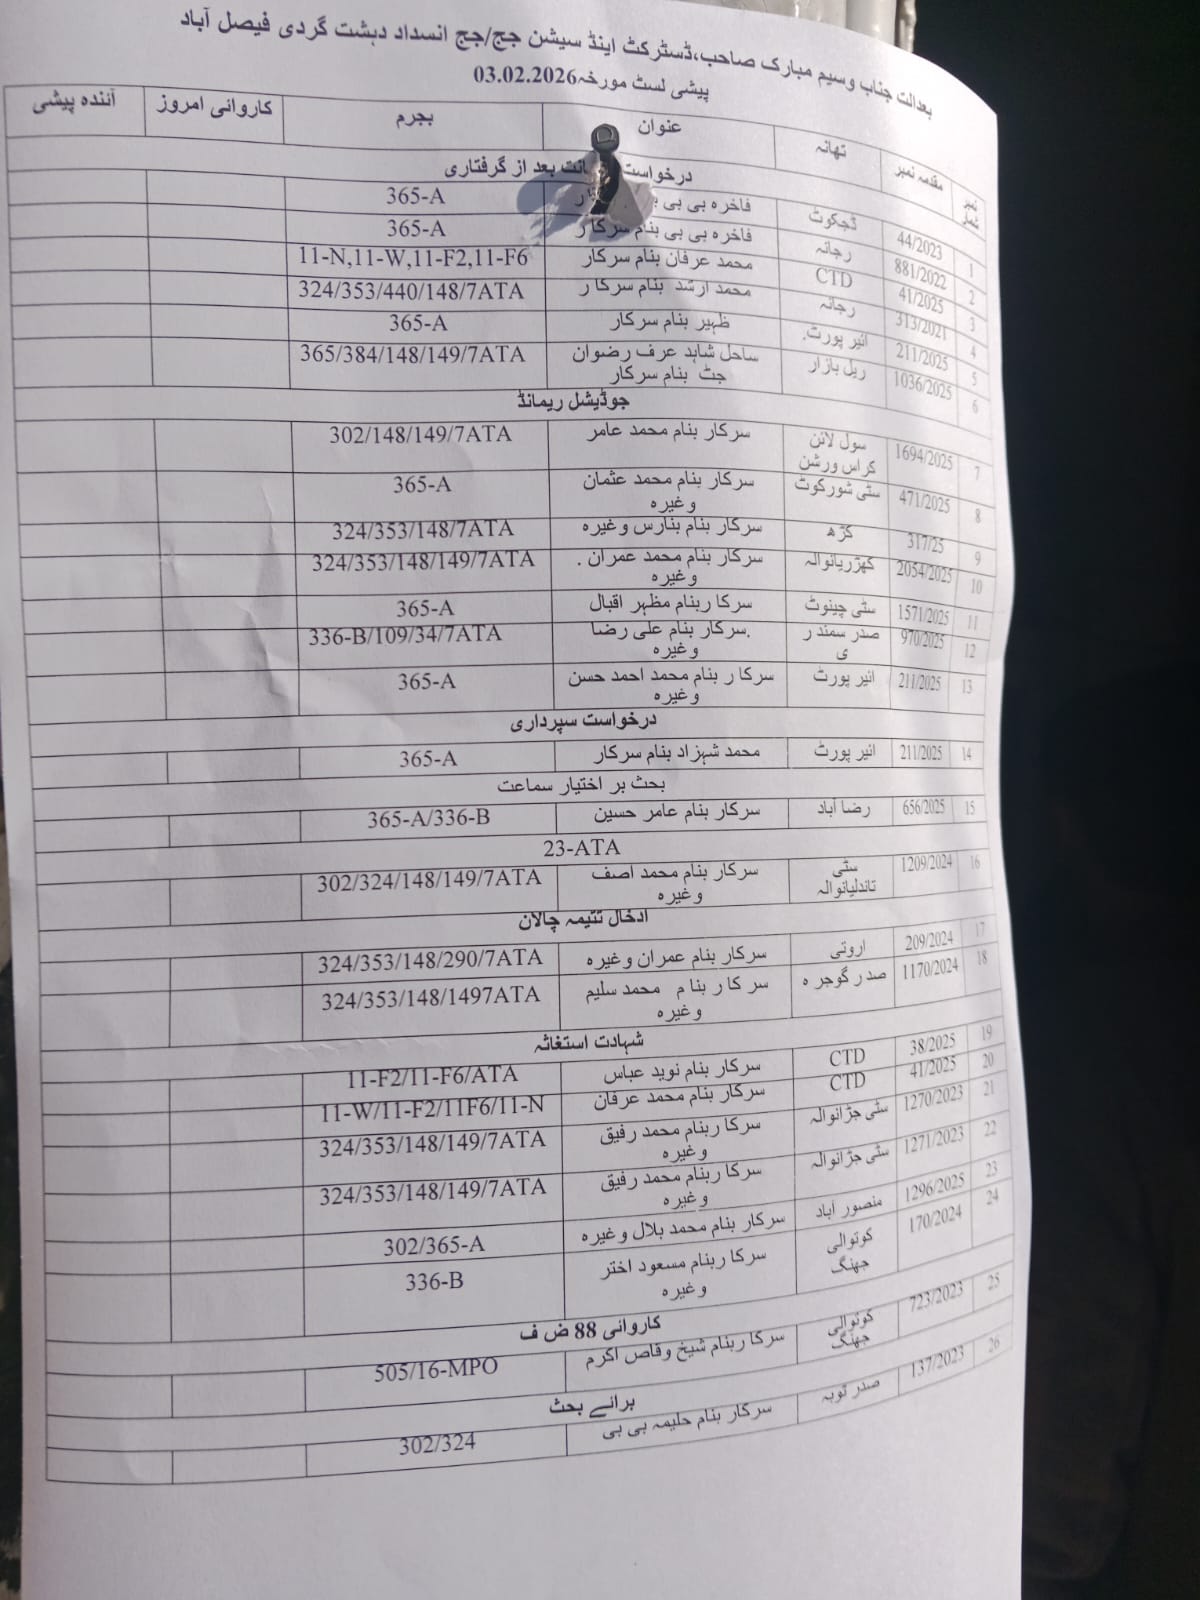 بعدالت جناب وسیم مبارک صاحب،ڈسٹرکٹ اینڈ سیشن جج/جج انسداد دہشت گردی فیصل آباد
پیشی لسٹ مورخہ03.02.2026
نمبر شمار مقدمہ نمبر تھانہ عنوان بجرم کاروائی امروز آئندہ پیشی
درخواست ضمانت بعد از گرفتاری
1 44/2023 ڈجکوٹ فاخرہ بی بی 365-A
2 881/2022 رجانہ فاخرہ بی بی بنام سرکا ر 365-A
3 41/2025 CTD محمد عرفان بنام سرکار 11-N,11-W,11-F2,11-F6
4 313/2021 رجانہ محمد ارشد بنام سرکا ر 324/353/440/148/7ATA
5 211/2025 ائیر پورٹ. ظہیر بنام سرکار 365-A
6 1036/2025 ریل بازار ساحل شاہد عرف رضوان جٹ بنام سرکار 365/384/148/149/7ATA
جوڈیشل ریمانڈ
7 1694/2025 سول لائن کراس ورشن سرکار بنام محمد عامر 302/148/149/7ATA
8 471/2025 سٹی شورکوٹ سرکار بنام محمد عثمان وغیرہ 365-A
9 317/25 گڑھ سرکار بنام بنارس وغیرہ 324/353/148/7ATA
10 2054/2025 کھڑریانوالہ سرکار بنام محمد عمران . وغیرہ 324/353/148/149/7ATA
11 1571/2025 سٹی چنیوٹ سرکا ربنام مظہر اقبال 365-A
12 970/2025 صدر سمند ر ی .سرکار بنام علی رضا وغیرہ 336-B/109/34/7ATA
13 211/2025 ائیر پورٹ سرکا ر بنام محمد احمد حسن وغیرہ 365-A
درخواست سپرداری
14 211/2025 ائیر پورٹ محمد شہزاد بنام سرکار 365-A
بحث بر اختیار سماعت
15 656/2025 رضا آباد سرکار بنام عامر حسین 365-A/336-B
23-ATA
16 1209/2024 سٹی تاندلیانوالہ سرکار بنام محمد آصف وغیرہ 302/324/148/149/7ATA
ادخال تتیمہ چالان
17 209/2024 اروتی سرکار بنام عمران وغیرہ 324/353/148/290/7ATA
18 1170/2024 صد ر گوجر ہ سر کا ر بنا م محمد سلیم وغیرہ 324/353/148/1497ATA
شہادت استغاثہ
19 38/2025 CTD سرکار بنام نوید عباس 11-F2/11-F6/ATA
20 41/2025 CTD سرکار بنام محمد عرفان 11-W/11-F2/11F6/11-N
21 1270/2023 سٹی جڑانوالہ سرکا ربنام محمد رفیق وغیرہ 324/353/148/149/7ATA
22 1271/2023 سٹی جڑانوالہ سرکا ربنام محمد رفیق وغیرہ 324/353/148/149/7ATA
23 1296/2025 منصور آباد سرکار بنام محمد بلال وغیرہ 302/365-A
24 170/2024 کوتوالی جھنگ سرکا ربنام مسعود اختر وغیرہ 336-B
کاروائی 88 ض ف
25 723/2023 کوتوالی جھنگ سرکا ربنام شیخ وقاص اکرم 505/16-MPO
برائے بحث
26 137/2023 صدر ٹوبہ سرکار بنام حلیمہ بی بی 302/324